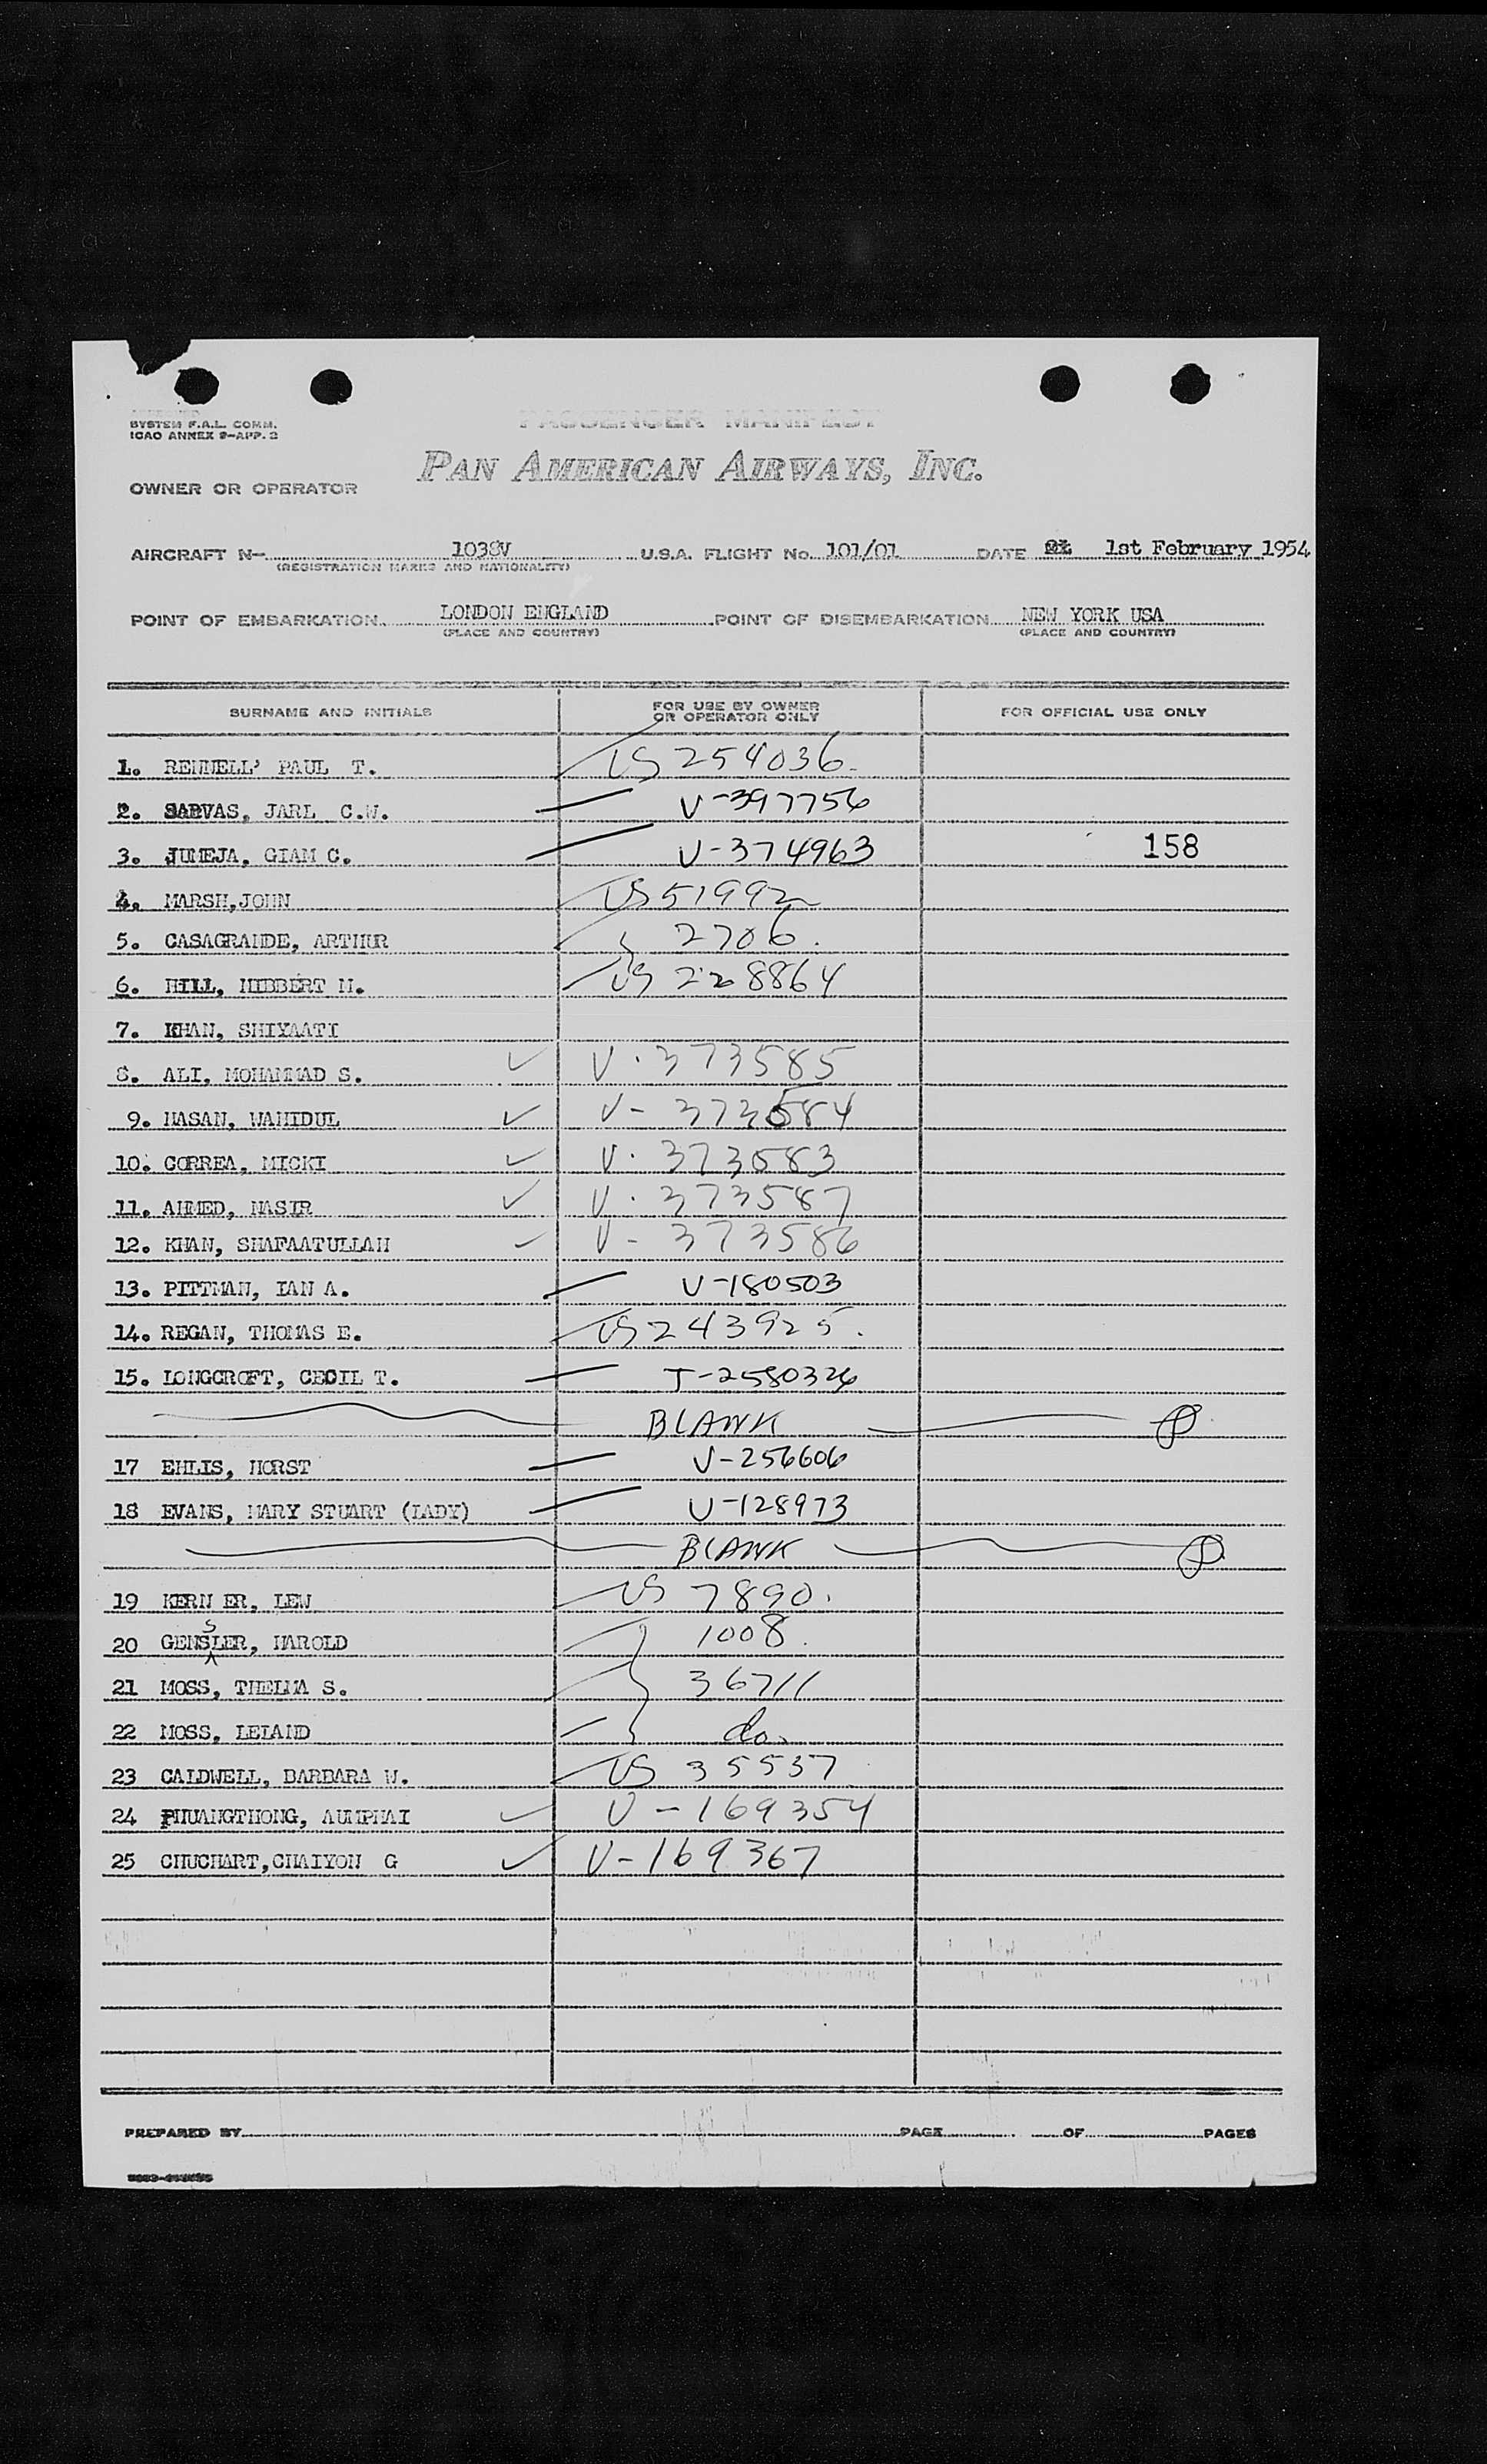 SYSTEM F.A.L. COMM.
ICAO ANNEX 9-APP. 2
PASSENGER MANIFEST
PAN AMERICAN AIRWAYS, INC.
OWNER OR OPERATOR
AIRCRAFT N- 1038V U.S.A. FLIGHT No. 101/01 DATE 1st February 1954
(REGISTRATION MARKS AND NATIONALITY)
POINT OF EMBARKATION LONDON ENGLAND POINT OF DISEMBARKATION NEW YORK USA
(PLACE AND COUNTRY) (PLACE AND COUNTRY)
SURNAME AND INITIALS FOR USE BY OWNER OR OPERATOR ONLY FOR OFFICIAL USE ONLY
1. RENNELL' PAUL T. US 254036
2. SARVAS, JARL C.W. V-397756
3. JUNEJA, GIAM C. V-374963 158
4. MARSH,JOHN US 51992
5. CASAGRANDE, ARTHUR 2706.
6. HILL, HIBBERT M. US 228864
7. KHAN, SHIYAATI
8. ALI, MOHAMMAD S. ✓ V-373585
9. HASAN, WAHIDUL ✓ V-373584
10. CORREA, MICKI ✓ V-373583
11. AHMED, NASIR ✓ V-373587
12. KHAN, SHAFAATULLAH V-373586
13. PITTMAN, IAN A. V-180503
14. REGAN, THOMAS E. US 243925.
15. LONGCROFT, CECIL T. T-2580326
BLANK
17 EHLIS, HORST V-256606
18 EVANS, MARY STUART (LADY) V-128973
BLANK
19 KERN ER, LEW US 7890.
20 GENSSLER, HAROLD 1008.
21 MOSS, THELMA S. 36711
22 MOSS, LELAND do.
23 CALDWELL, BARBARA W. US 35537
24 PHUANGTHONG, AUMPHAI ✓ V-169354
25 CHUCHART,CHAIYON G ✓ V-169367
PREPARED BY PAGE OF PAGES